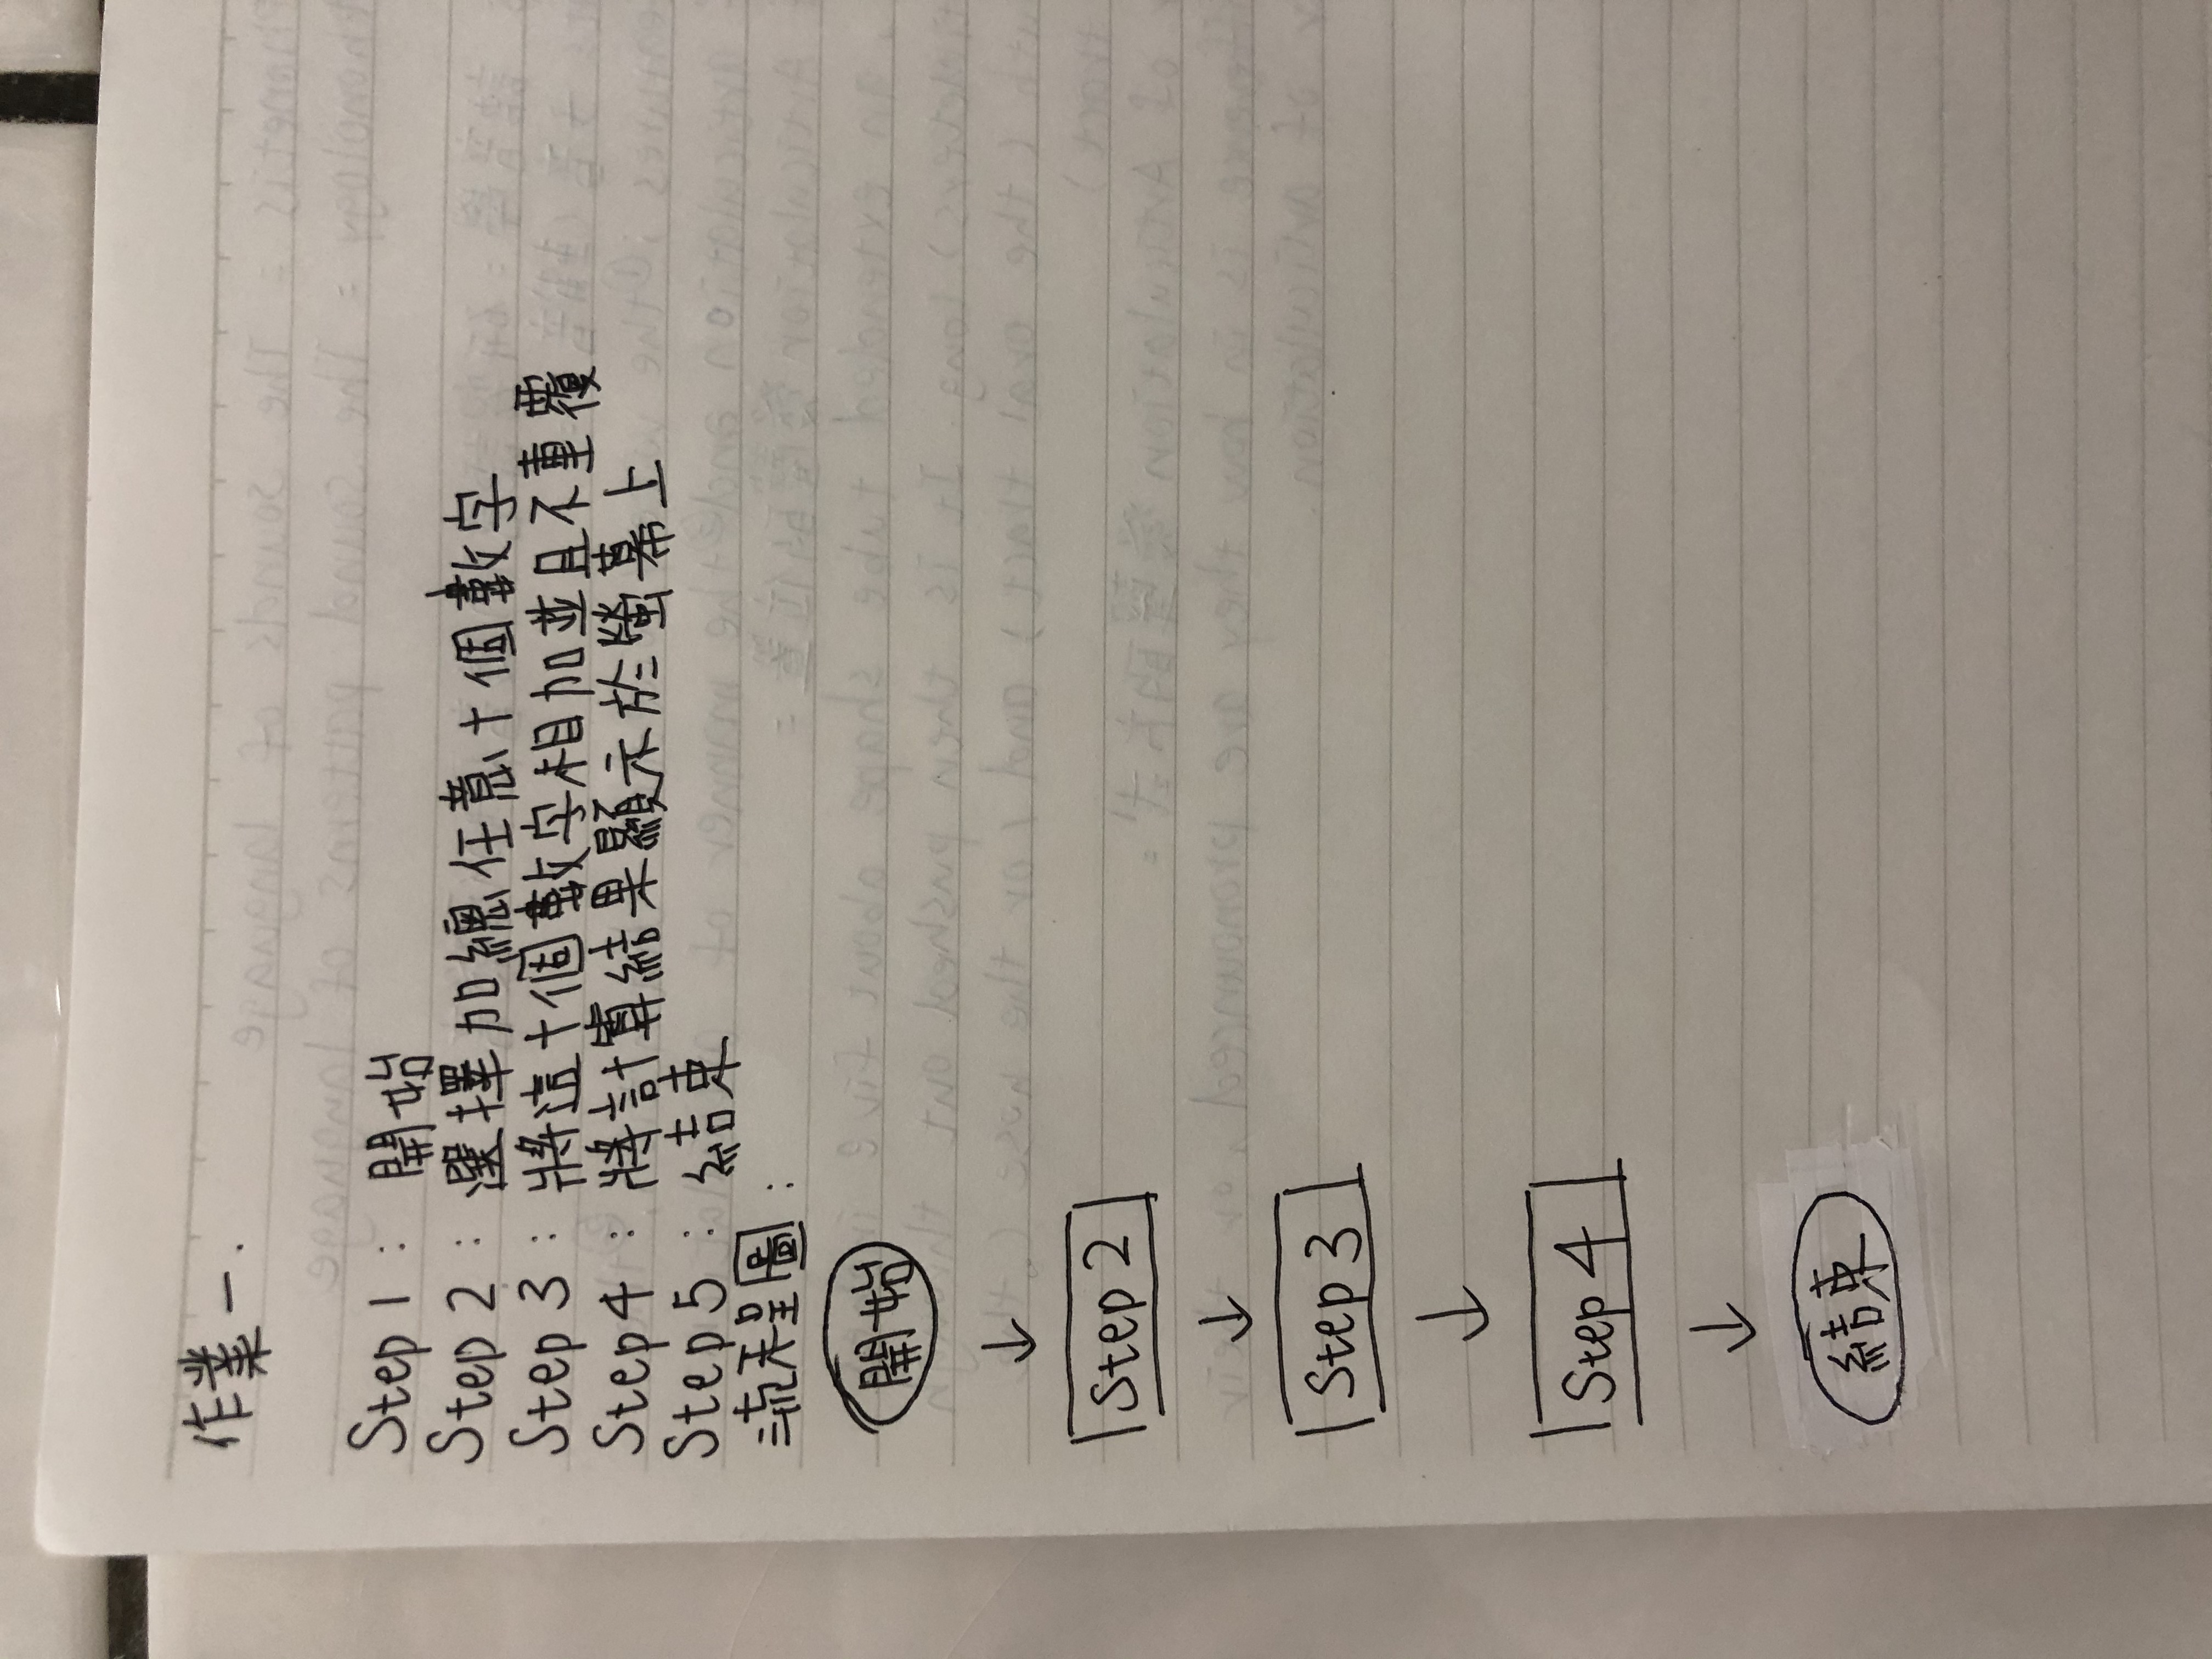 作業一.
Step 1 : 開始
Step 2 : 選擇加總任意十個數字
Step 3 : 將這十個數字相加並且不重覆
Step 4 : 將計算結果顯示於螢幕上
Step 5 : 結束
流程圖 :
開始
↓
Step 2
↓
Step 3
↓
Step 4
↓
結束